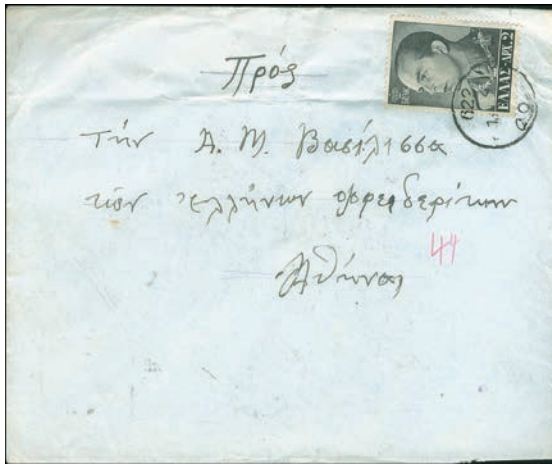 Πρός
Τήν Α. Μ. Βασίλισσα
τών Ελλήνων Φρειδερίκην
Αθήνας
44
ΕΛΛΑΣ-ΔΡΧ.2
622